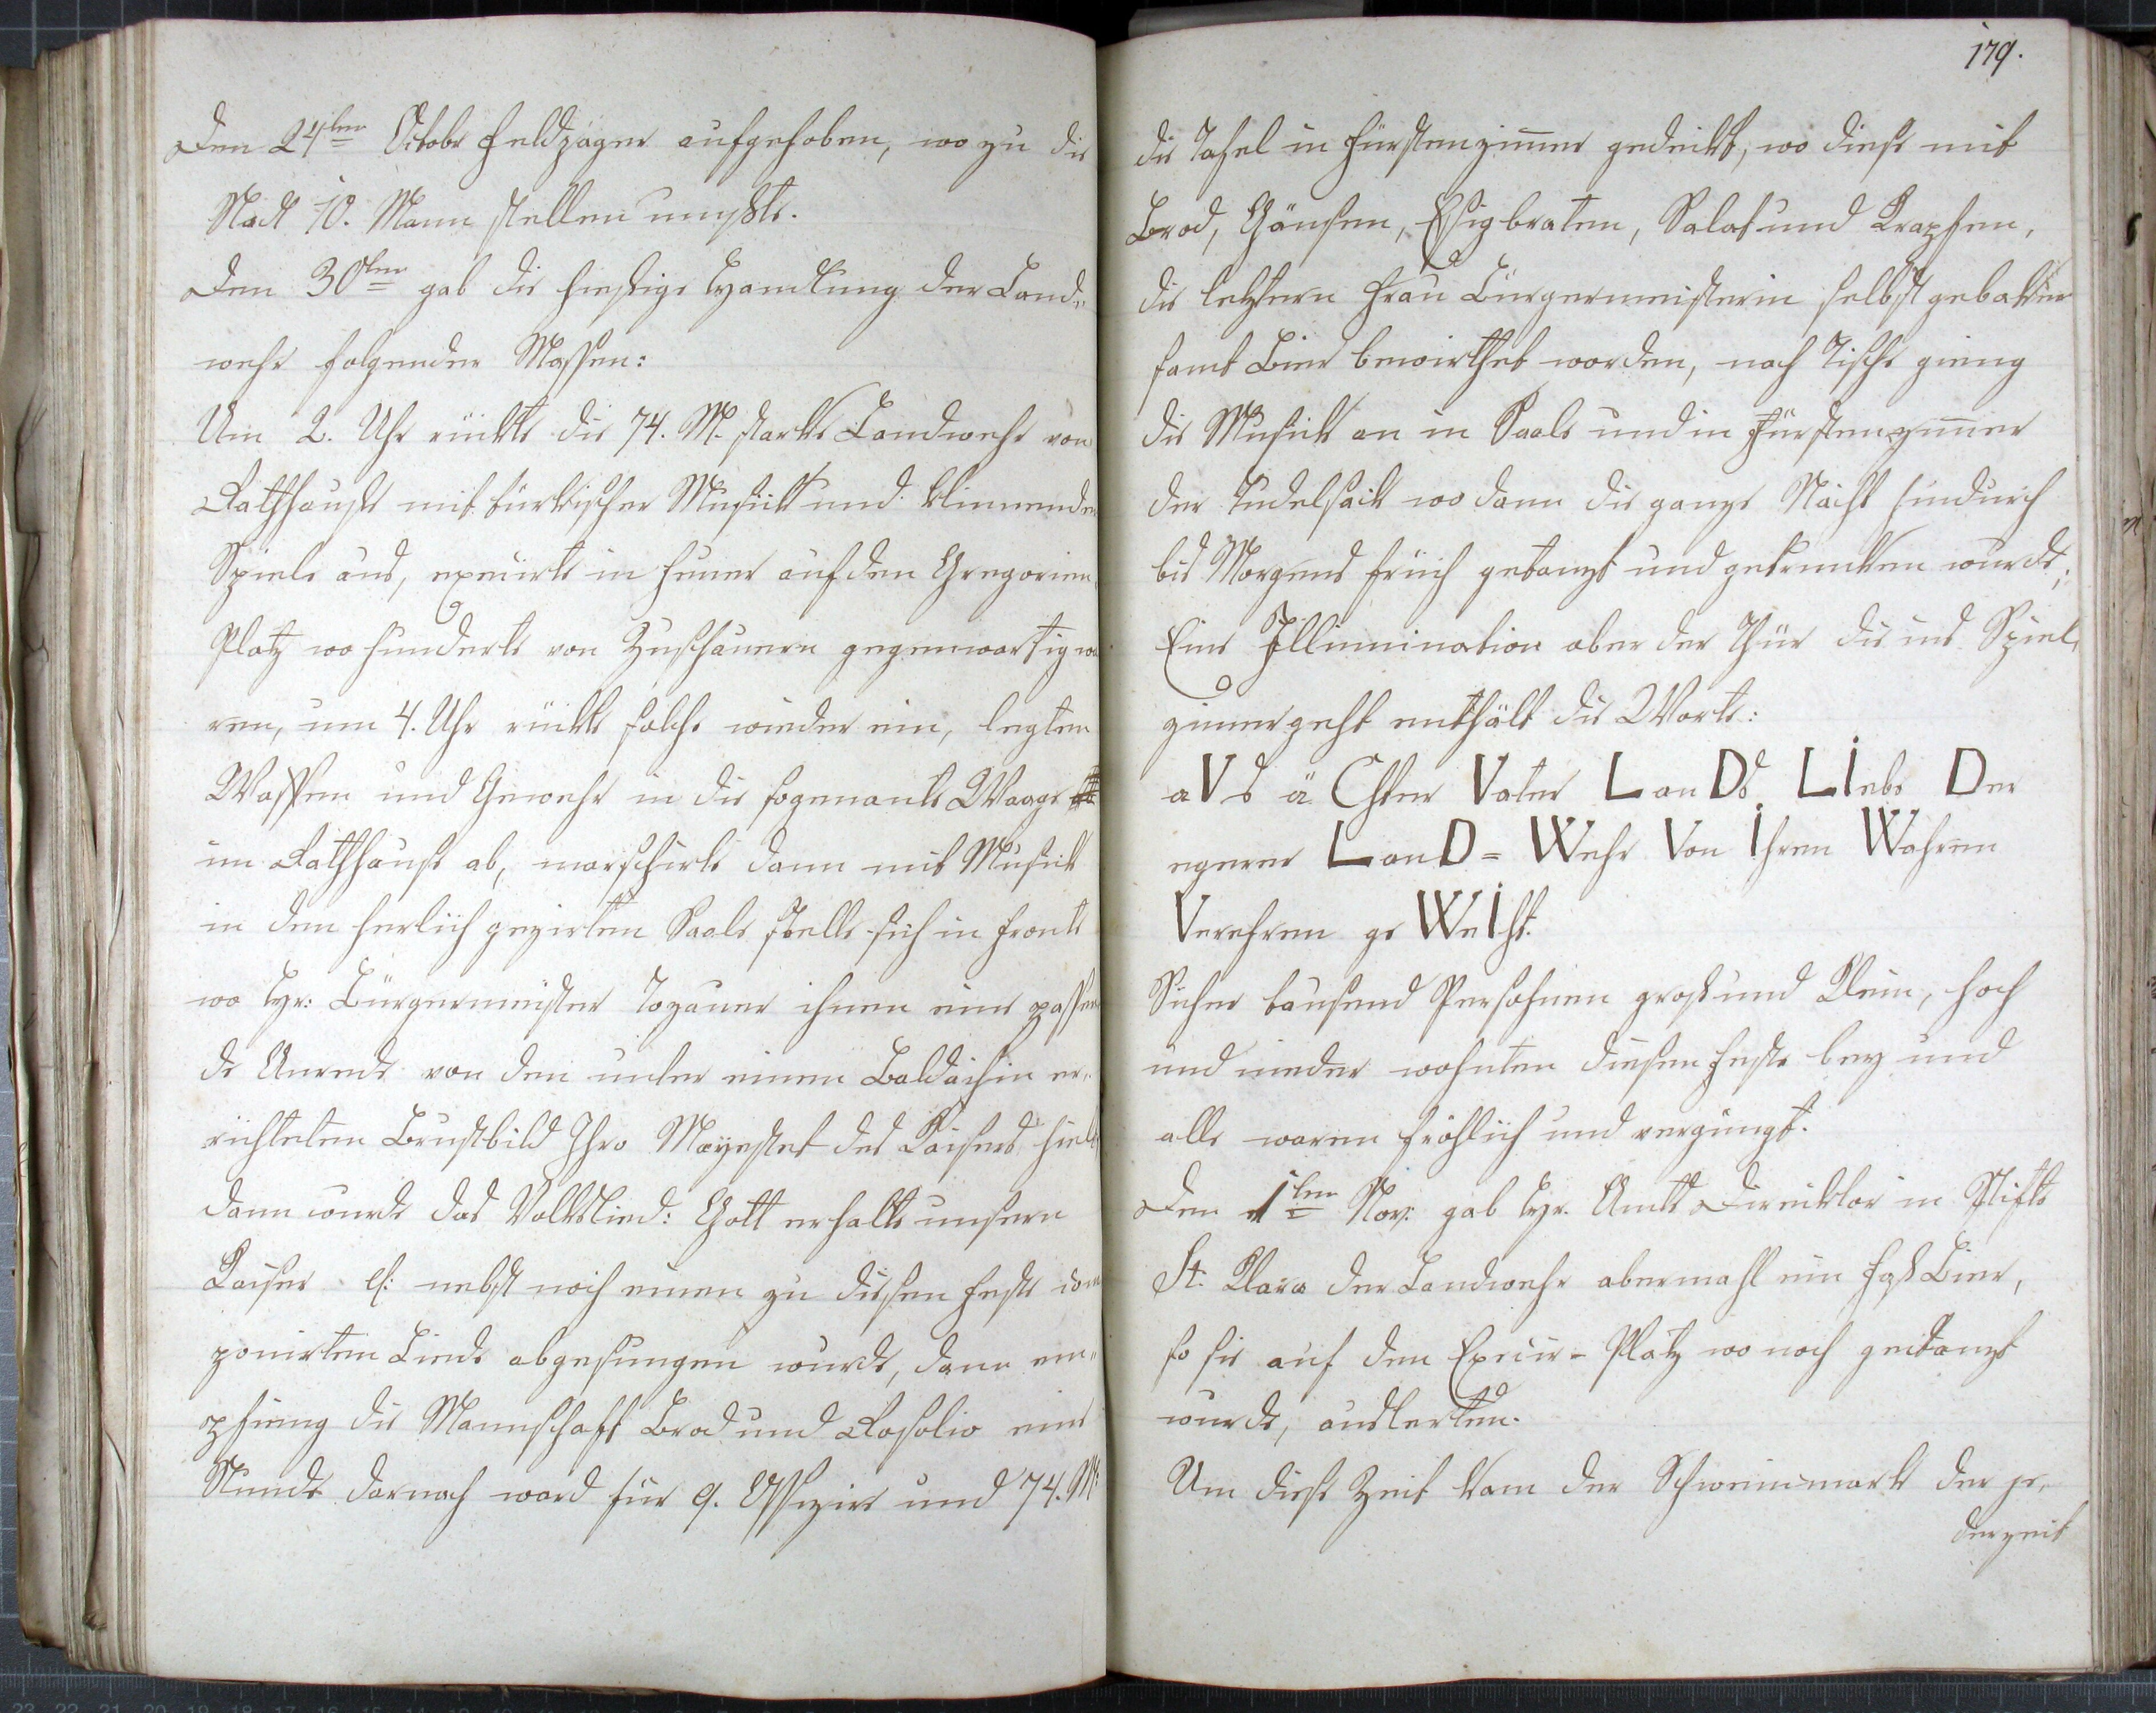 Den 24ten Octobr Feldjäger aufgehoben, wo zu die
Stadt 10. Mann stellen mußte.
Den 30ten gab die hiesige Handlung der Land„
wehr folgender Massen:
Um 2. Uhr rückte die 74. M. starke Landwehr von
Rathhause mit türkischer Musick und klimmenden
Spiele aus, exercirte in Feuer auf den Gregorien„
Platz wo hunderte von Zuschauern gegenwartig wa
ren, um 4. Uhr rückte solche wieder ein, legten
Waffen und Gewehr in die sogenante Waage
im Rathhause ab, marschirte dann mit Musick
in den herlich gezirten Saale stelle sich in Fronte
wo Hr: Bürgermeister Totzauer ihnen eine passen
de Anrede von den unter einem Baldachin er„
richteten Brustbild Ihro Mayestet des Kaisers hielt
dann wurde das Volkslied: Gott erhalte unsern
Kaiser nebst noch einen zu diesen Feste com
ponirten Liede abgesungen wurde, dann em„
pfieng die Mannschaft Brod und Rosolio eine
Stunde darnach ward für 9. Offizire und 74. M:
179.
die Tafel in Fürstenzimer gedeckt, wo diese mit
Brod, Gänsen, Essigbraten, Salat und Krapfen,
die letztern Frau Bürgermeisterin selbst gebacken
samt Bier bewirthet worden, nach Tische gieng
die Musick an in Saale und in Fürstenzimmer
der Dudelsack wo dann die ganze Nacht hindurch
bis Morgens früh getanzt und getruncken wurde;
Eine Illumination ober der Thür die ins Spiel„
zimer geht enthält die Worte:
aVs äChter Vater LanDs LIebe Der
egerer LanD=Wehr Von Ihren Wahren
Verehrern geWeIht.
Sicher tausend Persohnen groß und Klein, hoch
und nieder wohnten diesen Feste bey und
alle waren fröhlich und vergüngt.
Den 1ten Nov: gab Hr. Amts Direcktor in Stifte
St. Klara der Landwehr abermahl ein Faß Bier,
so sie auf den Exercir=Platz wo noch getanzt
wurde, ausleerten.
Um diese Zeit kam der Schweinmarkt der je„
derzeit